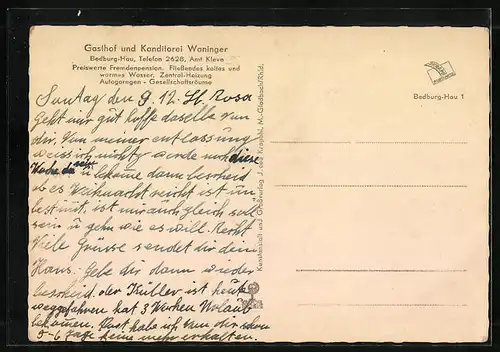 Gasthof und Konditorei Waninger
Bedburg-Hau, Telefon 2628, Amt Kleve
Preiswerte Fremdenpension. Fließendes kaltes und
warmes Wasser. Zentral-Heizung
Autogaragen - Gesellschaftsräume
Bedburg-Hau 1
Kunstanstalt und Großverlag J. M.-Gladbach/Rhld.
Suntag den 9. 12. St. Rosa
Geht mir gut hoffe daselbe von
dir. Von meiner entlassung
weiss ich nicht werde noch diese
Woche da sein u bekome dann bescheid
ob es Weihnacht reicht ist un
bestimt, ist mir auch gleich soll
sein u gehn wie es will. Recht
Viele Grüsse sendet dir dein
Hans. Gebe dir dann wieder
bescheid. der Küller ist heute
weggefahren hat 3 Wochen Urlaub
bekomen. Post habe ich von dir schon
5-6 Tage keine mehr erhalten.